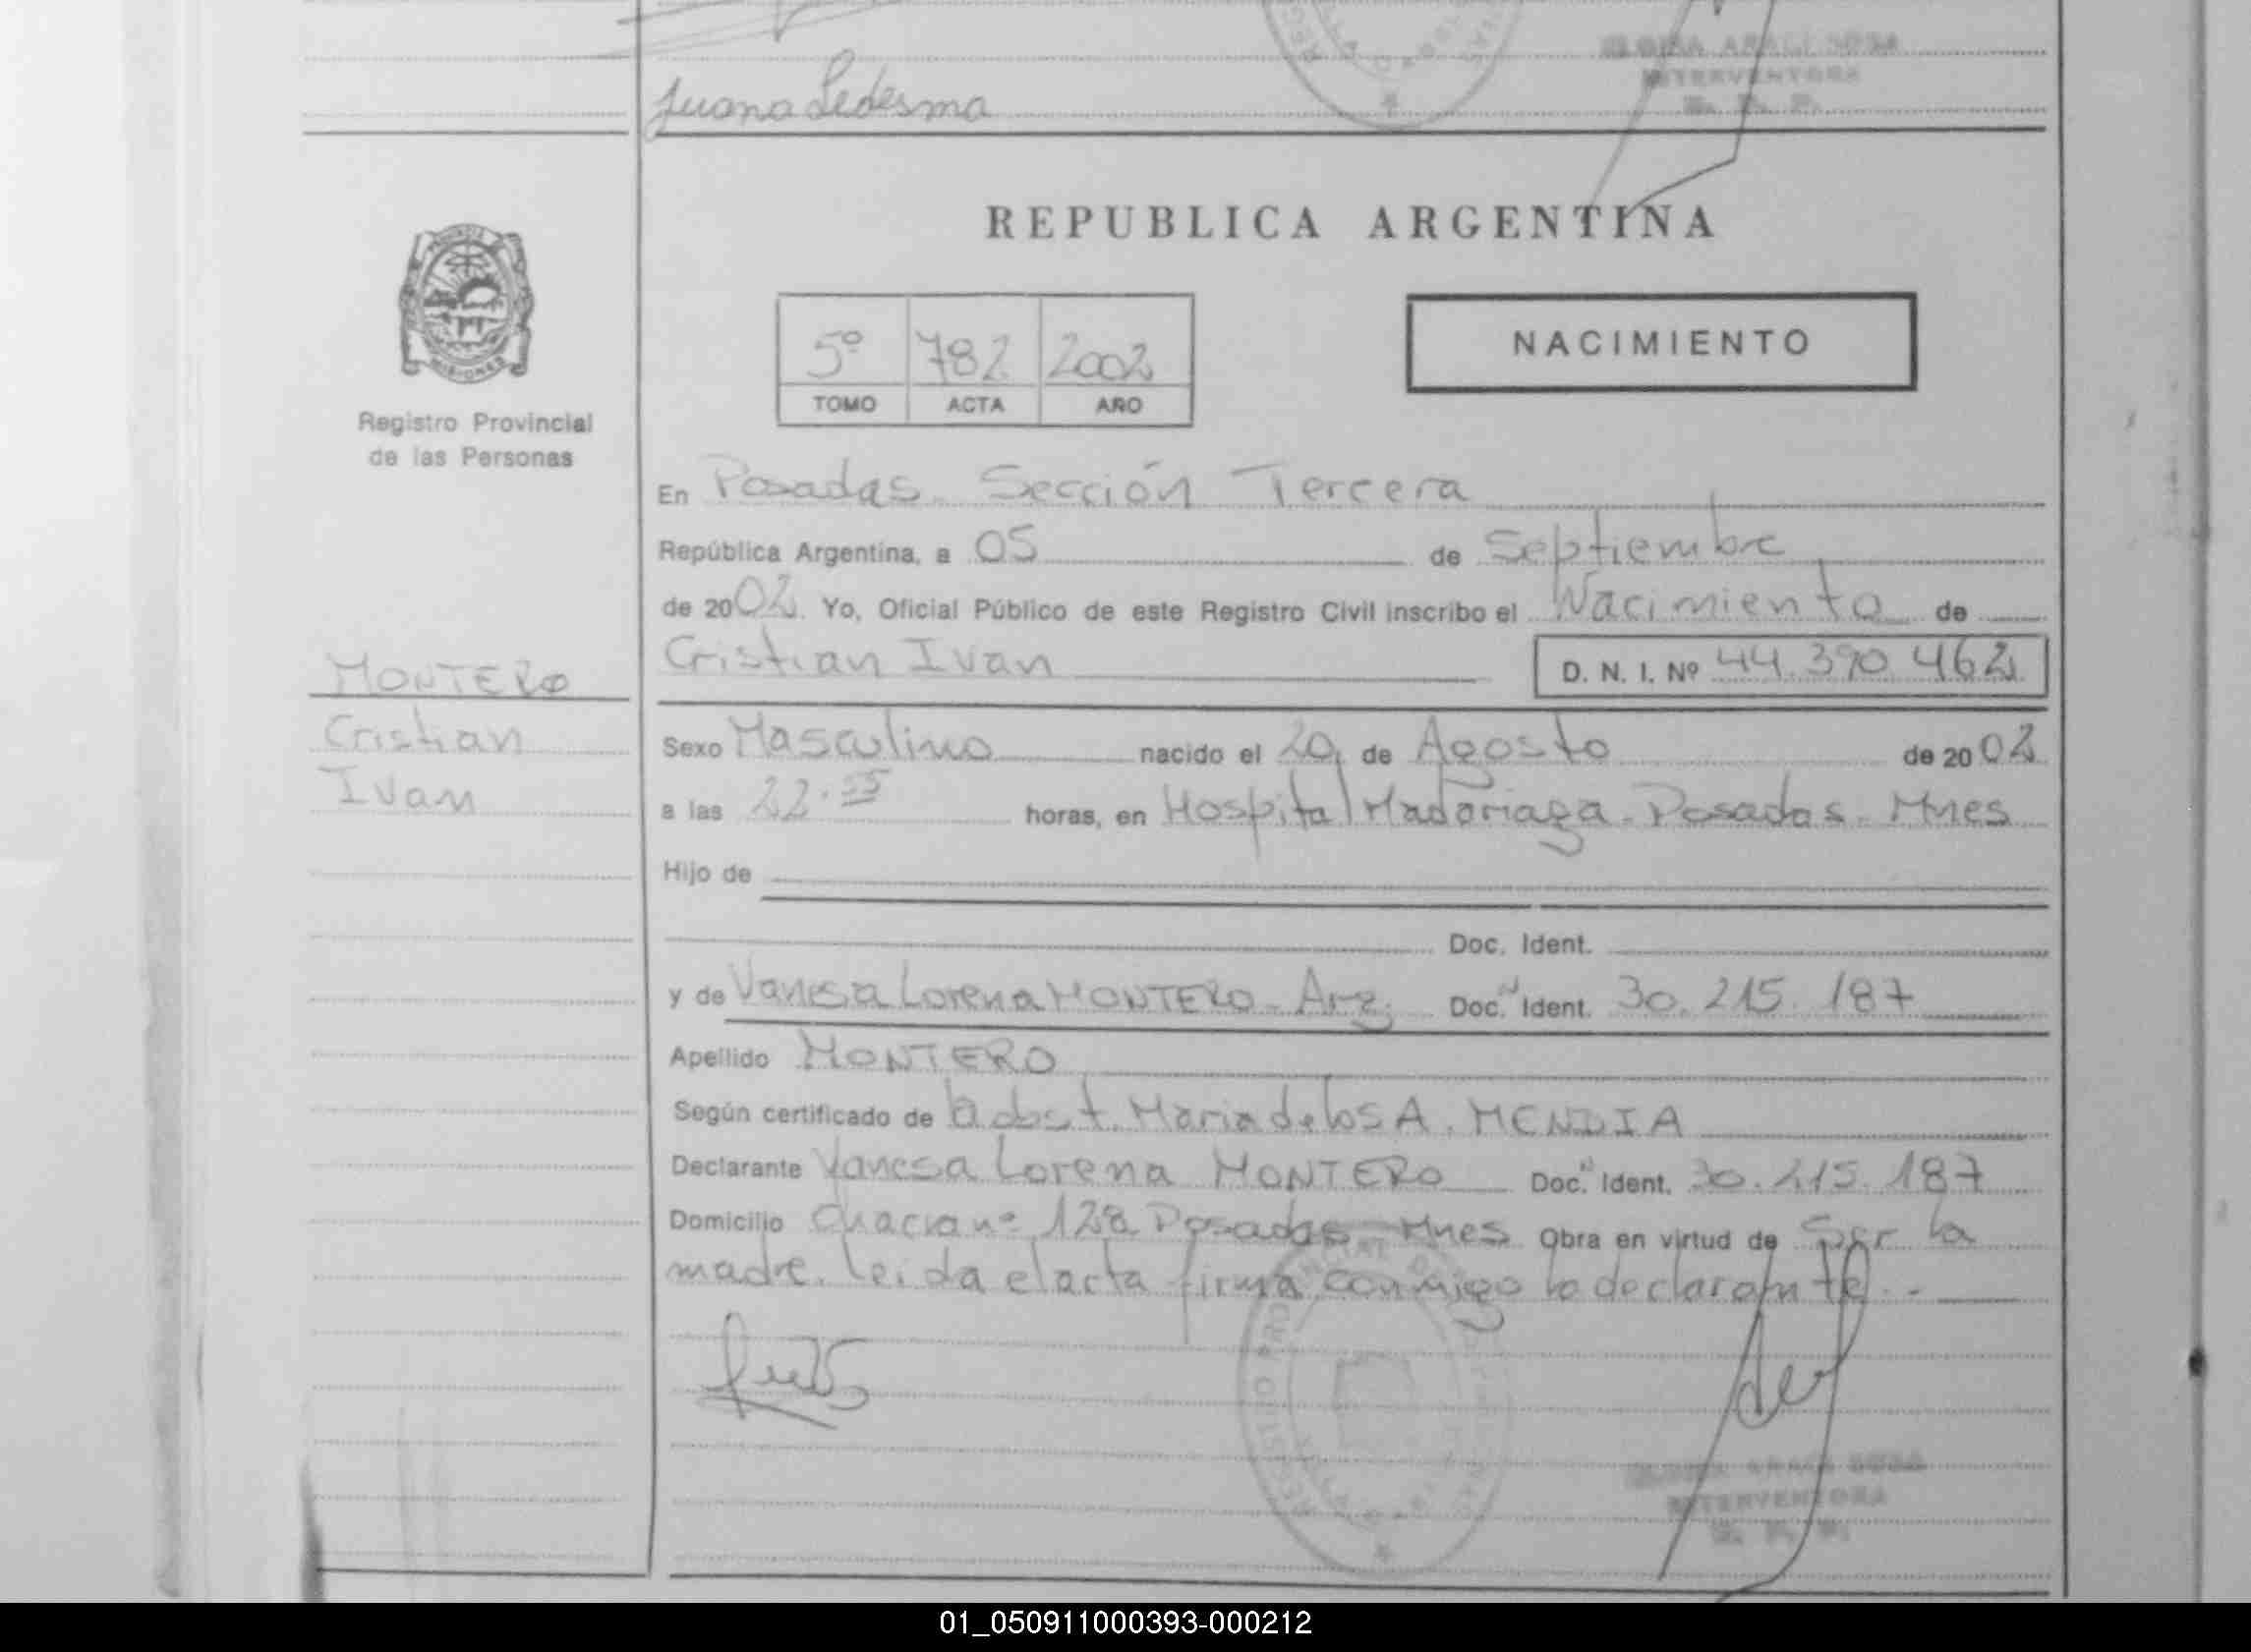 Juana Ledesma
INTERVENTORA
REPUBLICA ARGENTINA
MISIONES
Registro Provincial
de las Personas
5º 782 2002
TOMO ACTA AÑO
NACIMIENTO
En Posadas. Sección Tercera
República Argentina, a 05 de Septiembre
de 2002. Yo, Oficial Público de este Registro Civil inscribo el Nacimiento de
Cristian Ivan D. N. I. Nº 44.390.462
MONTERO
Cristian
Ivan
Sexo Masculino nacido el 20 de Agosto de 2002
a las 22.55 horas, en Hospital Madariaga. Posadas. Mnes
Hijo de
Doc. Ident.
y de Vanesa Lorena MONTERO - Arg. Doc. Ident. 30.215.187
Apellido MONTERO
Según certificado de la obst. Maria de los A. MENDIA
Declarante Vanesa Lorena MONTERO Doc. Ident. 30.215.187
Domicilio Chacra nº 128 Posadas - Mnes Obra en virtud de Ser la
madre. leida el acta firma conmigo la declarante.-
REGISTRO
INTERVENTORA
01_050911000393-000212